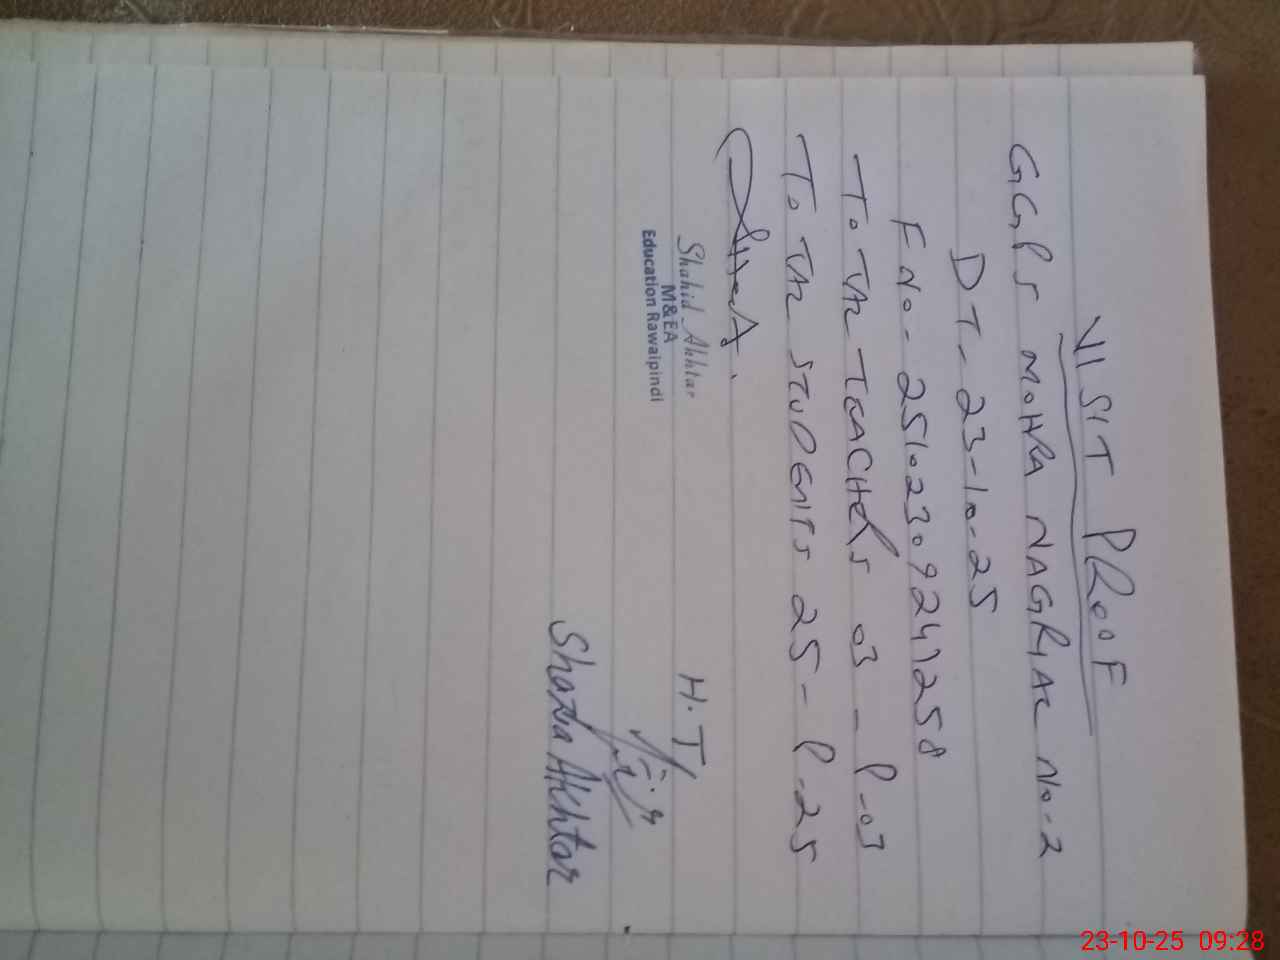 VISIT PROOF
GGPS MOHRA NAGRIAL No-2
DT-23-10-25
F No-25102309247258
ToTAL TEACHERS 03 - P-03
ToTAL STUDENTS 25 - P-25
Shahid Akhtar
M&EA
Education Rawalpindi
H.T
Shazia Akhtar
23-10-25 09:28